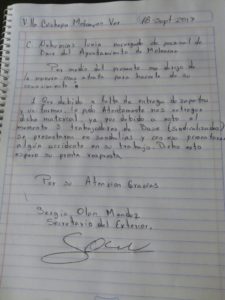 Villa Cuichapa Moloacan Ver 18 Sept 2017
C. encargado de personal de
Base del Ayuntamiento de Moloacan
Por medio del presente me dirijo de
la manera mas atenta para hacerle de su
conocimiento
Que debido a falta de entrega de zapatos
y uniformes le pido Atentamente nos entregue
dicho material, ya que debido a esto al
momento 3 trabajadores de Base (sindicalizados)
se presentaron en sandalias y
algún accidente en su trabajo. Dicho esto
espero su pronta respuesta
Por su Atencion Gracias
Sergio Olan Mendez
Secretario del Exterior.